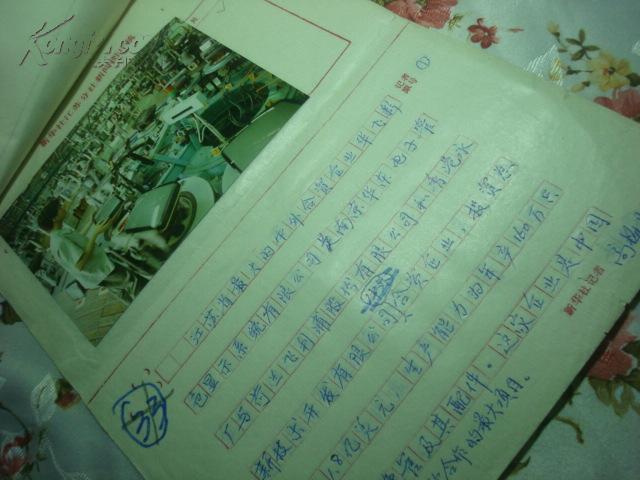 新华社江苏分社新闻
记者
篇号
①
江苏省最大的中外合资企业华飞彩
色显示系统有限公司是南京华东电子管
厂与荷兰飞利浦股份有限公司和香港永
新技术开发有限公司合资企业,投资为
1.8亿美元,生产能力为年产160万只
管及其配件。这家企业是中国
合作的最大项目。
新华社记者 高
33